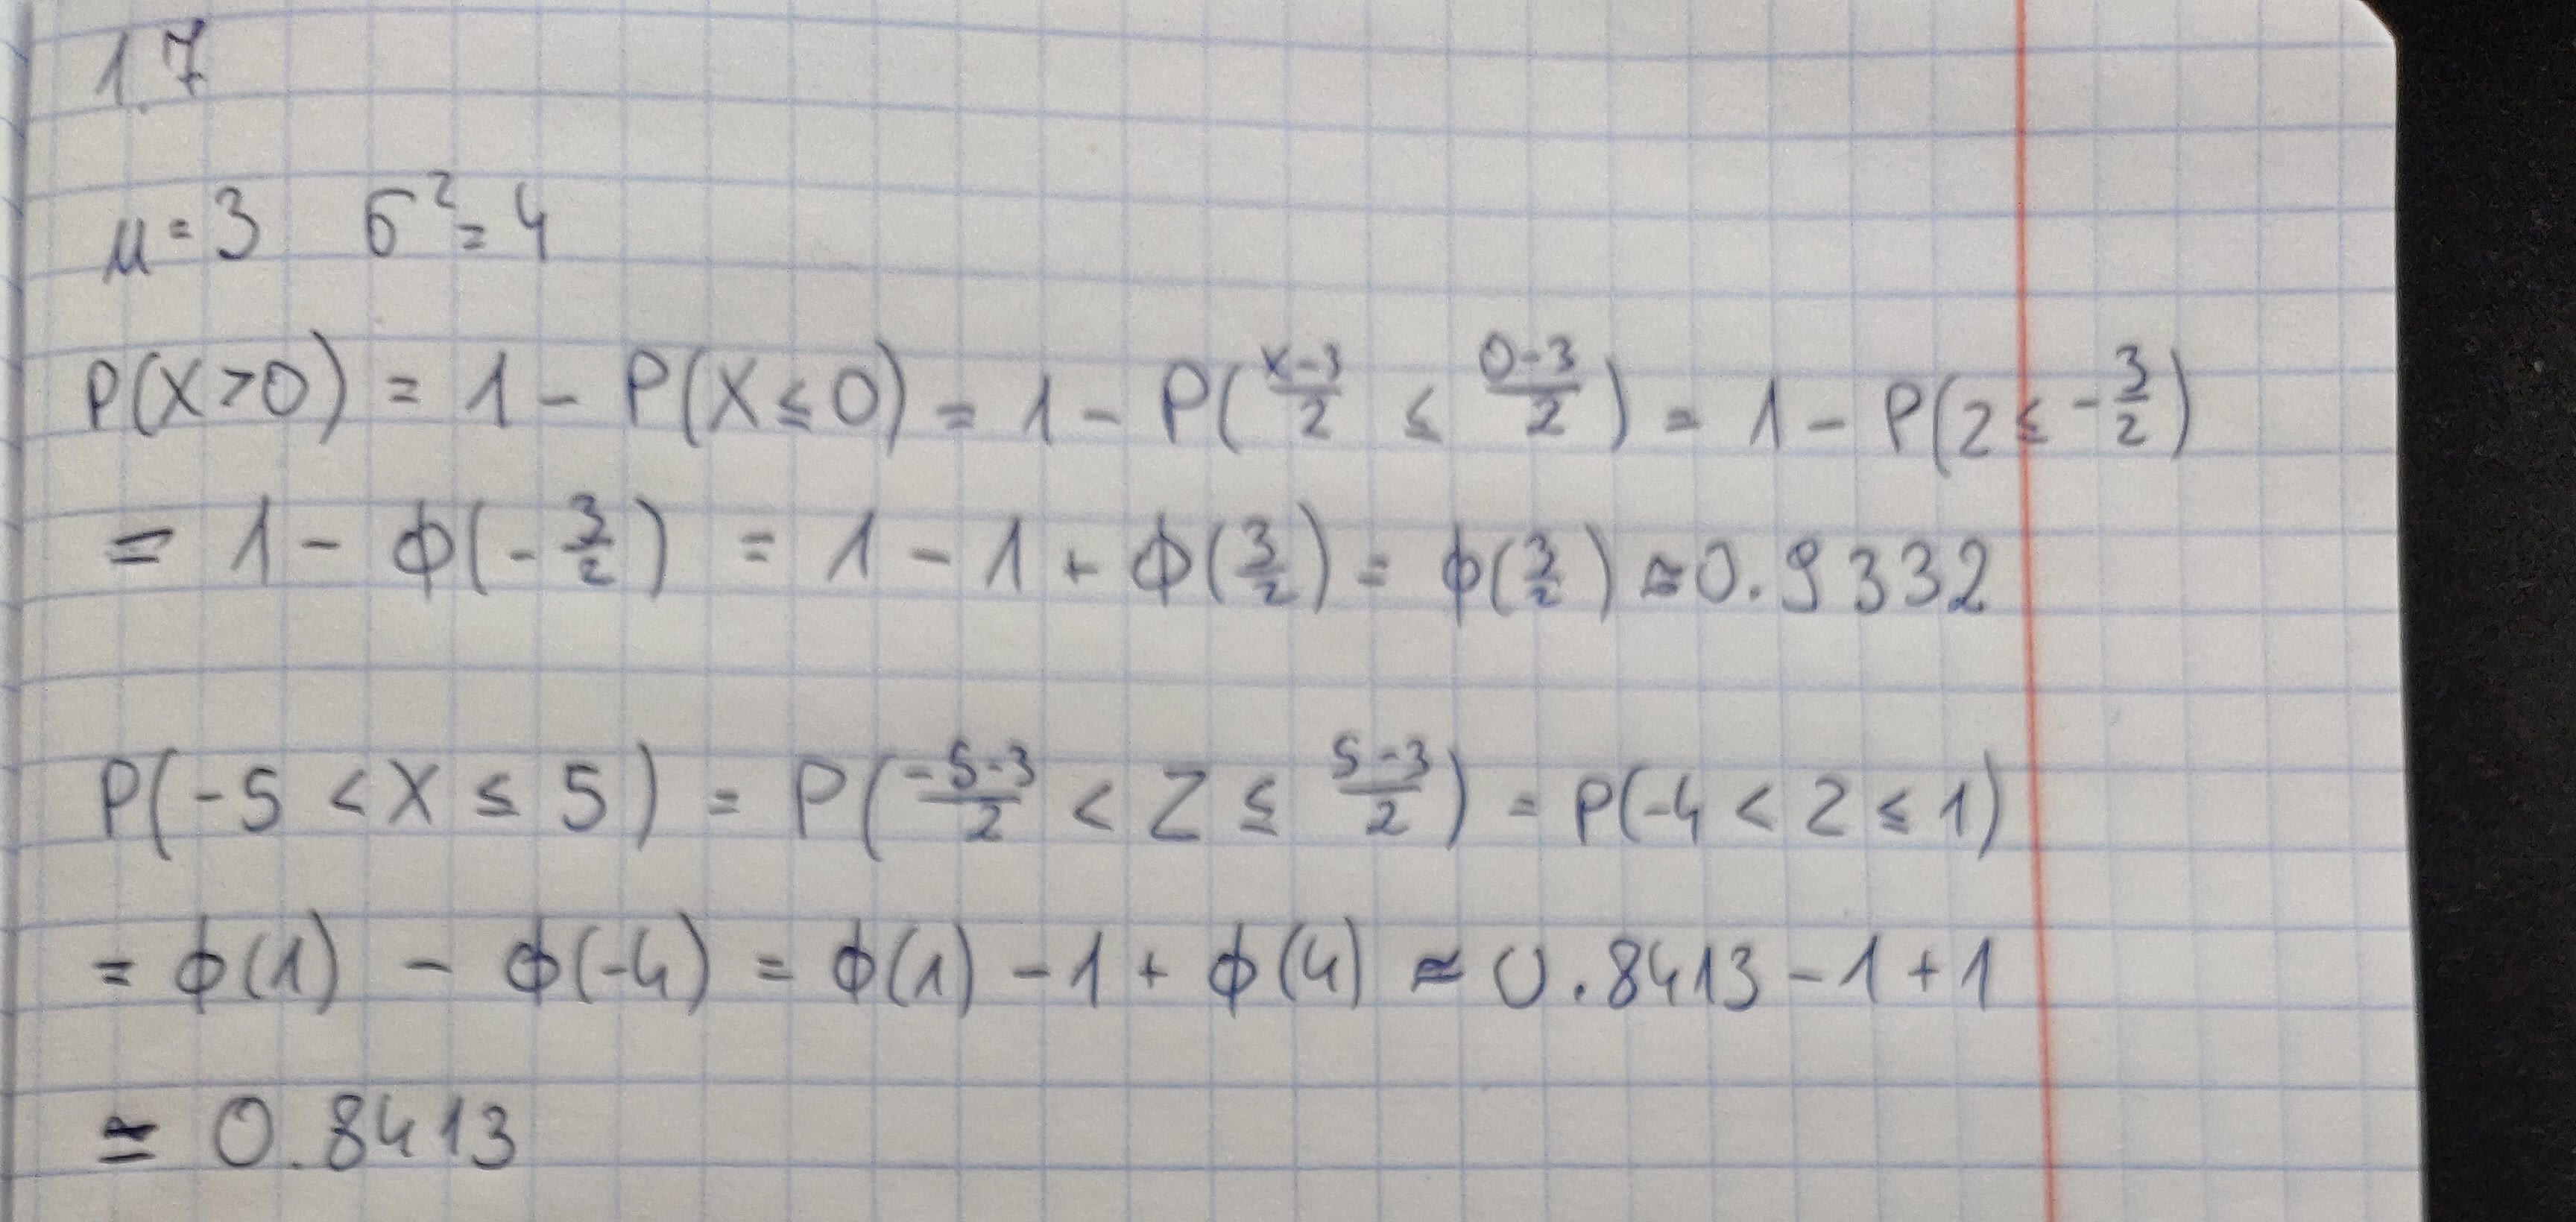 1.7
μ = 3 σ² = 4
P(X > 0) = 1 - P(X ≤ 0) = 1 - P((x-3)/2 ≤ (0-3)/2) = 1 - P(Z ≤ -3/2)
= 1 - ϕ(-3/2) = 1 - 1 + ϕ(3/2) = ϕ(3/2) ≈ 0.9332
P(-5 < X ≤ 5) = P((-5-3)/2 < Z ≤ (5-3)/2) = P(-4 < Z ≤ 1)
= ϕ(1) - ϕ(-4) = ϕ(1) - 1 + ϕ(4) ≈ 0.8413 - 1 + 1
≈ 0.8413